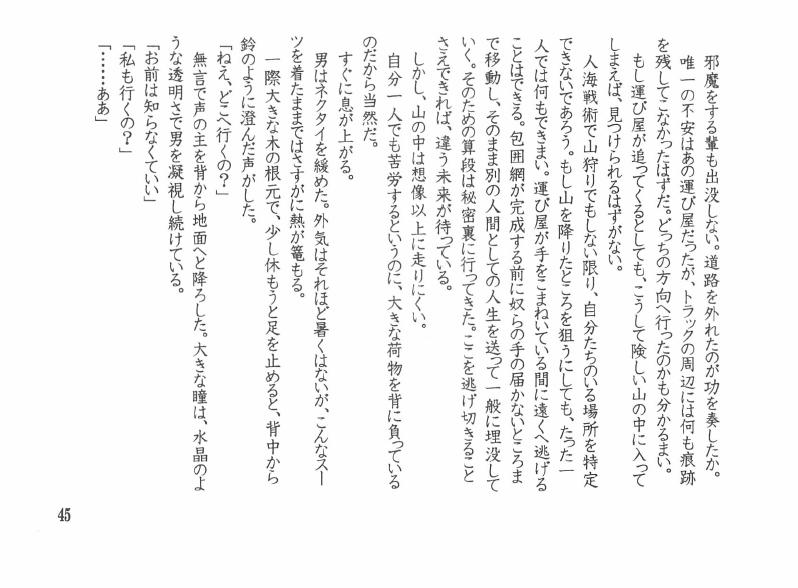 邪魔をする輩も出没しない。道路を外れたのが功を奏したか。
唯一の不安はあの運び屋だったが、トラックの周辺には何も痕跡
を残してこなかったはずだ。どっちの方向へ行ったのかも分かるまい。
もし運び屋が追ってくるとしても、こうして険しい山の中に入って
しまえば、見つけられるはずがない。
人海戦術で山狩りでもしない限り、自分たちのいる場所を特定
できないであろう。もし山を降りたところを狙うにしても、たった一
人では何もできまい。運び屋が手をこまねいている間に遠くへ逃げる
ことはできる。包囲網が完成する前に奴らの手の届かないところま
で移動し、そのまま別の人間としての人生を送って一般に埋没して
いく。そのための算段は秘密裏に行ってきた。ここを逃げ切きること
さえできれば、違う未来が待っている。
しかし、山の中は想像以上に走りにくい。
自分一人でも苦労するというのに、大きな荷物を背に負っている
のだから当然だ。
すぐに息が上がる。
男はネクタイを緩めた。外気はそれほど暑くはないが、こんなスー
ツを着たままではさすがに熱が篭もる。
一際大きな木の根元で、少し休もうと足を止めると、背中から
鈴のように澄んだ声がした。
「ねえ、どこへ行くの？」
無言で声の主を背から地面へと降ろした。大きな瞳は、水晶のよ
うな透明さで男を凝視し続けている。
「お前は知らなくていい」
「私も行くの？」
「……ああ」
45